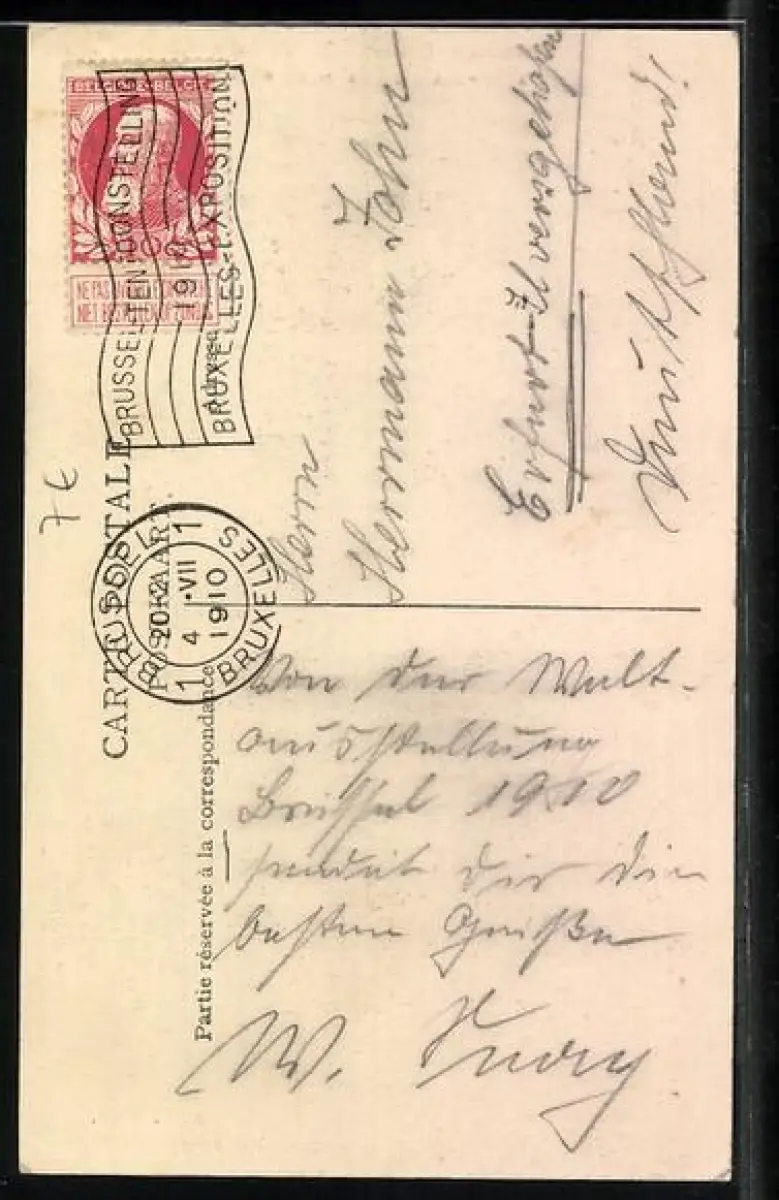 CARTE POSTALE
POSTKAART.
Partie réservée à la correspondance
Adresse
BELGIQUE·BELGIË
10
NE PAS LIVRER LE DIMANCHE
NIET BESTELLEN OP ZONDAG
BRUSSEL-TENTOONSTELLING
1910
BRUXELLES-EXPOSITION
BRUSSEL 1
20-2
4 ·VII
1910
1 BRUXELLES 1
7€
Von der Welt-
ausstellung
Brüssel 1910
sendet dir die
besten Grüße
W.
Herrn
Herrmann John
Erfurt-Ilversgehofen
Deutschland!